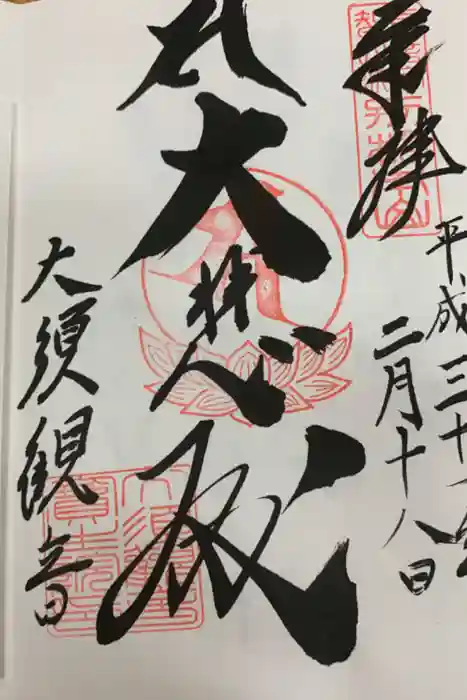 奉拝
平成三十年
二月十八日
大悲殿
大須観音